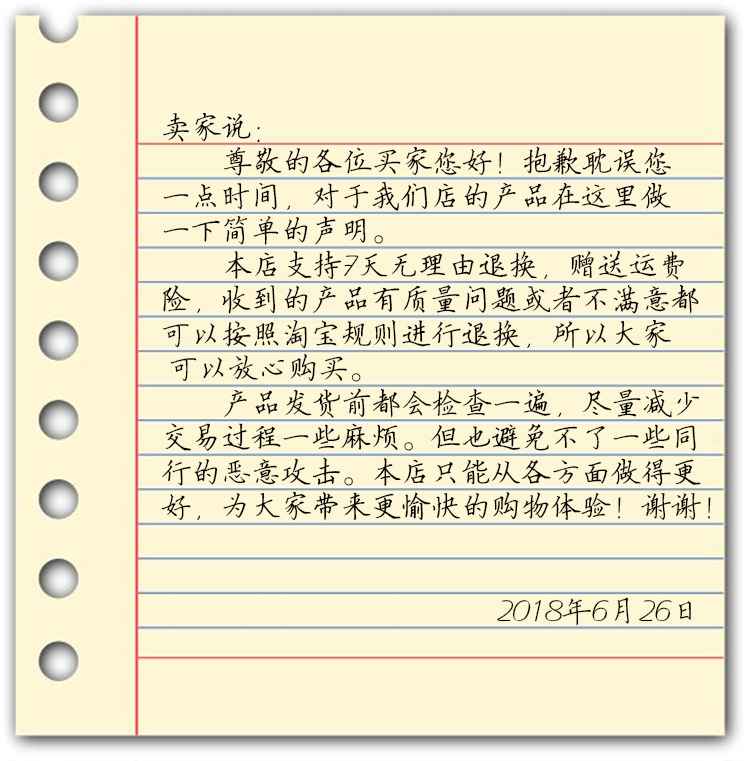 卖家说：
尊敬的各位买家您好！抱歉耽误您
一点时间，对于我们店的产品在这里做
一下简单的声明。
本店支持7天无理由退换，赠送运费
险，收到的产品有质量问题或者不满意都
可以按照淘宝规则进行退换，所以大家
可以放心购买。
产品发货前都会检查一遍，尽量减少
交易过程一些麻烦。但也避免不了一些同
行的恶意攻击。本店只能从各方面做得更
好，为大家带来更愉快的购物体验！谢谢！
2018年6月26日